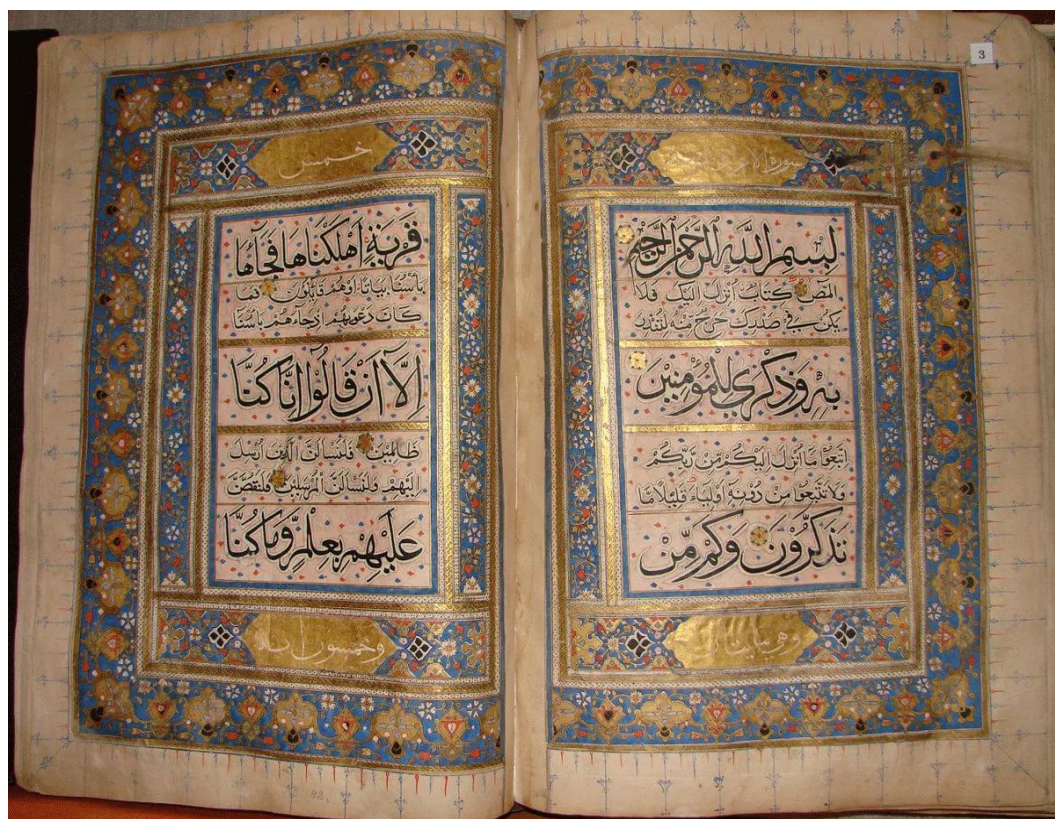 3
سورة الاعراف
بسم الله الرحمن الرحيم
المص كتاب أنزل اليك فلا
يكن في صدرك حرج منه لتنذر
به وذكري للمؤمنين
اتبعوا ما أنزل اليكم من ربكم
ولا تتبعوا من دونه أولياء قليلا ما
تذكرون وكم من
وهي مايتان
خمس
قرية أهلكناها فجآءها
بأسنا بياتا أوهم قايلون فما
كان دعويهم اذ جاءهم باسنا
إلا أن قالوا انا كنا
ظالمين فلنسالن الذين ارسل
اليهم ولنسالن المرسلين فلنقصن
عليهم بعلم وما كنا
وخمسون اية
82